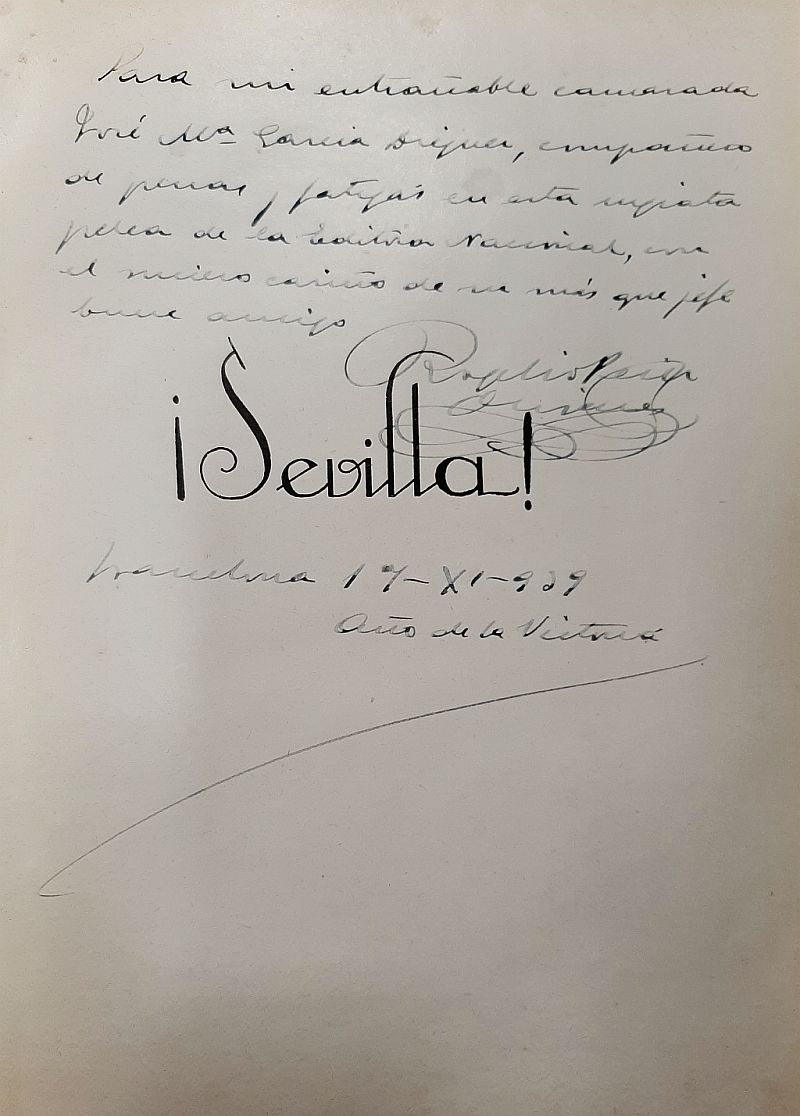 Para mi entrañable camarada
José Mª Garcia, compañero
de penas y fatigas en esta ingrata
pelea de la Editora Nacional, con
el sincero cariño de su más que jefe
buen amigo
Rogelio
¡Sevilla!
Barcelona 17-XI-939
Año de la Victoria